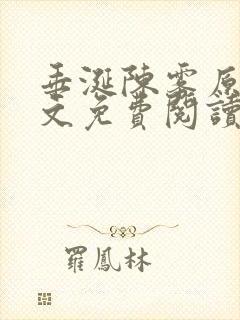 垂涎陳霧原
文免費閱讀
羅鳳林